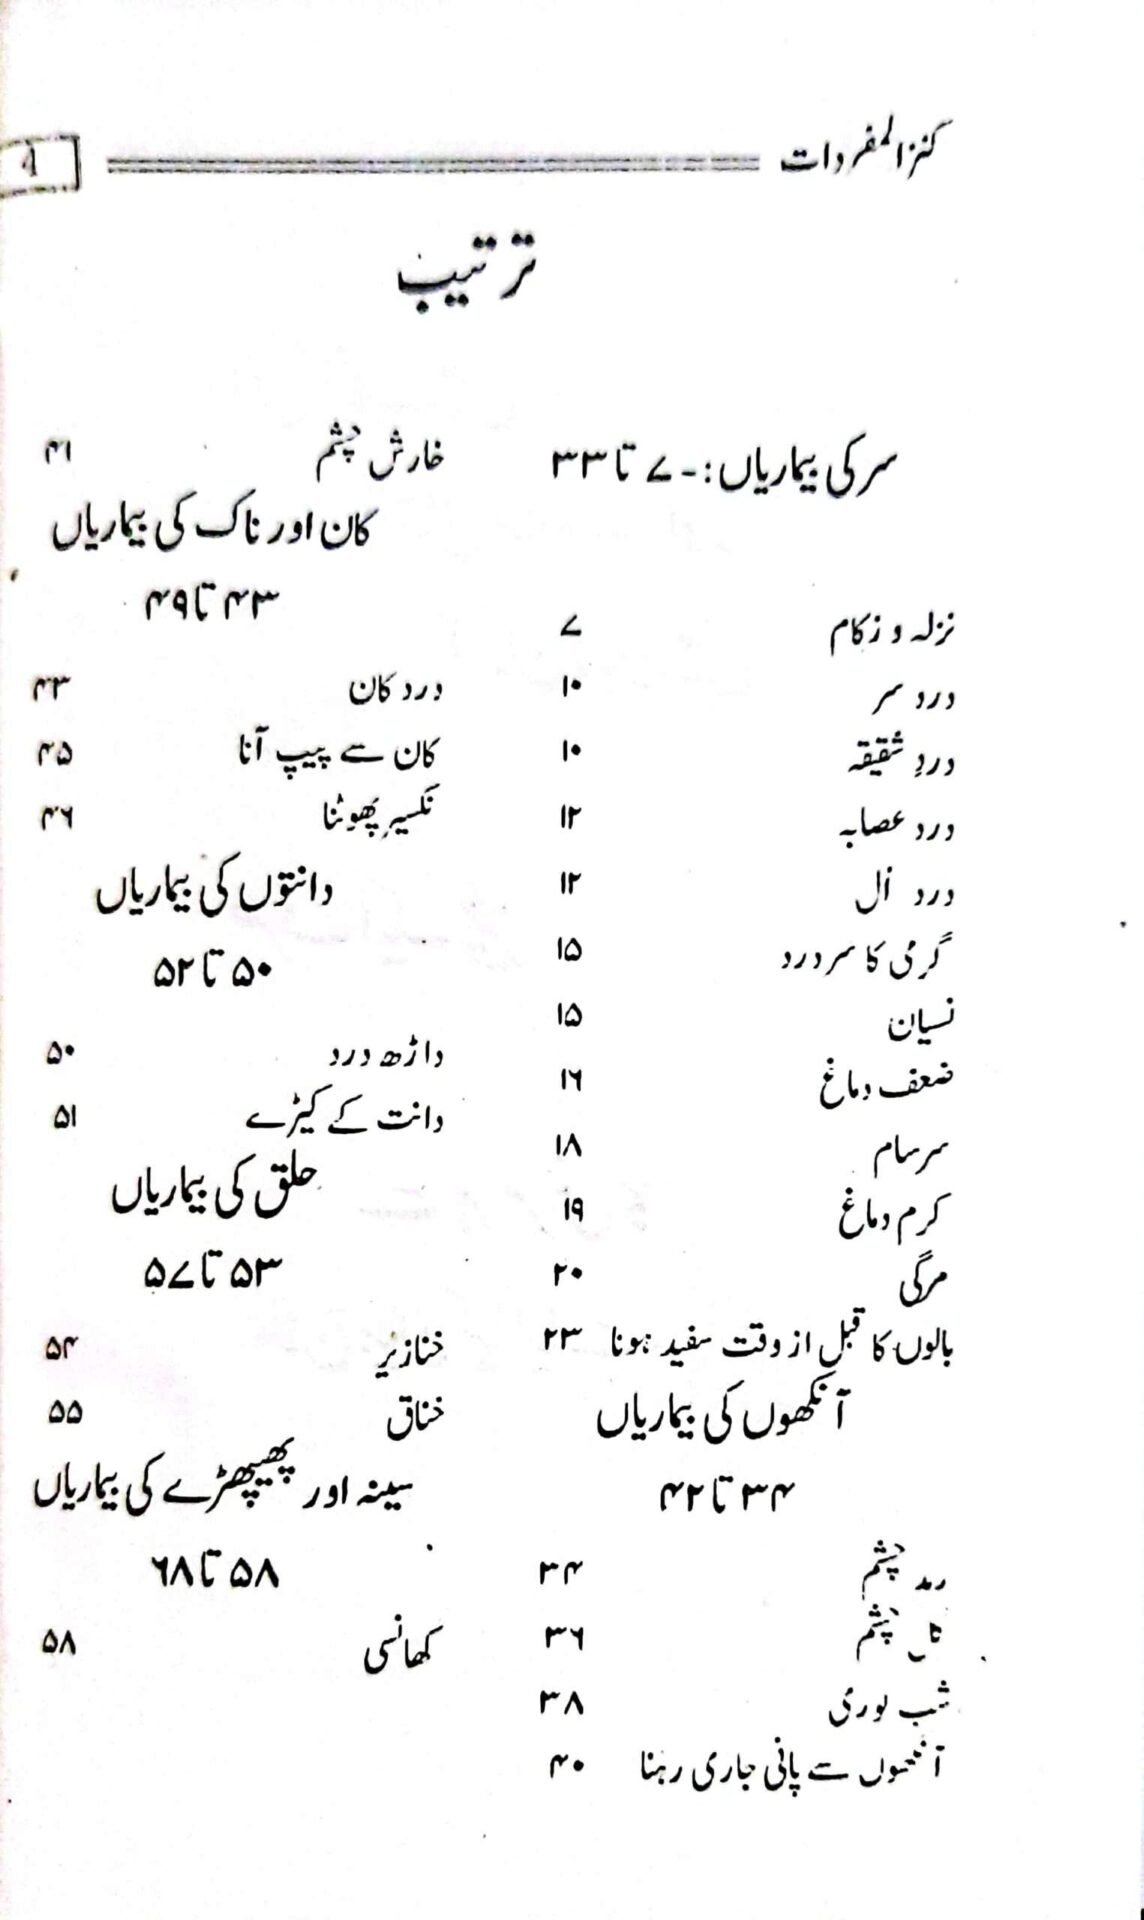 کنزالمفردات 4
ترتیب
سر کی بیماریاں :- ۷ تا ۳۳
نزلہ و زکام ۷
درد سر ۱۰
دردِ شقیقہ ۱۰
درد عصابہ ۱۲
درد ۱۲
گرمی کا سر درد ۱۵
نسیان ۱۵
ضعف دماغ ۱۶
سرسام ۱۸
کرم دماغ ۱۹
مرگی ۲۰
بالوں کا قبل از وقت سفید ہونا ۲۳
آنکھوں کی بیماریاں
۳۴ تا ۴۲
رمد چشم ۳۴
چشم ۳۶
شب کوری ۳۸
آنکھوں سے پانی جاری رہنا ۴۰
خارش چشم ۴۱
کان اور ناک کی بیماریاں
۴۳ تا ۴۹
درد کان ۴۳
کان سے پیپ آنا ۴۵
نکسیر پھوٹنا ۴۶
دانتوں کی بیماریاں
۵۰ تا ۵۲
داڑھ درد ۵۰
دانت کے کیڑے ۵۱
حلق کی بیماریاں
۵۳ تا ۵۷
خنازیر ۵۴
خناق ۵۵
سینہ اور پھیپھڑے کی بیماریاں
۵۸ تا ۶۸
کھانسی ۵۸